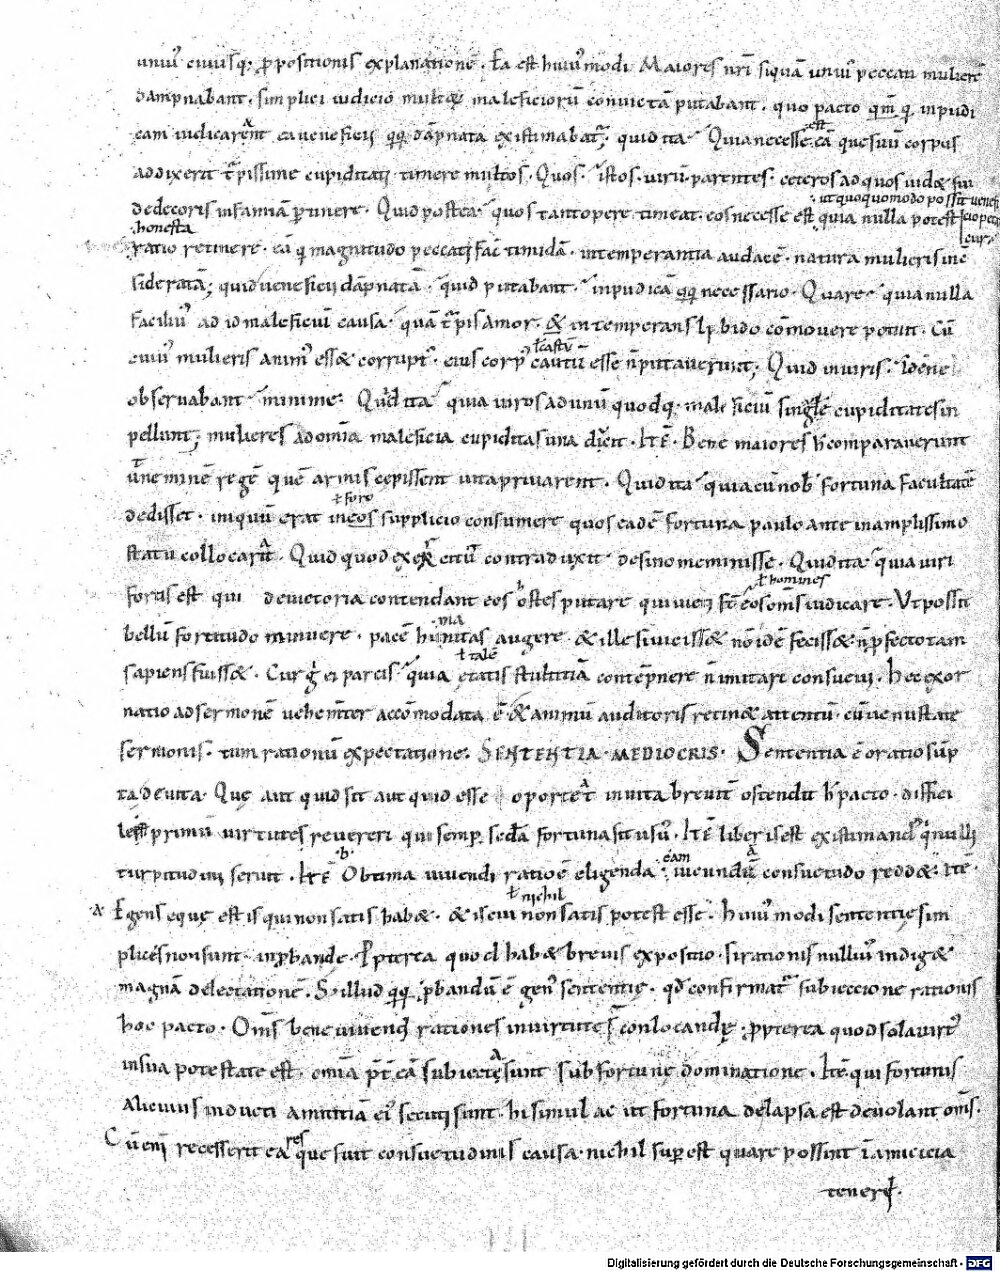 uniuſ cuiuſq; p̄poſitioniſ explanationē. Ea eſt huiuſmodi. Maioreſ nr̄i ſiquā uniuſ peccati mulierē
dampnabant. ſimplici iudicio multoꝝ maleficiorū conuictā putabant. quo pacto qm̄ q̄ inpudi
cam iudicarent ea ueneficii qq; dāpnata exiſtimabat̄. quid ita? Quia neceſſe eſt eā que ſuū corpuſ
addixerit t̄piſſime cupiditati timere multoſ. Quoſ? iſtoſ. uirū. parenteſ. ceteroſ ad quoſ uidet ſui
ut quoquo modo poſſit uenefi
dedecoriſ infamiā p̄tinere. Quid poſtea? quoſ tantopere timeat. eoſ neceſſe eſt quia nulla poteſt
honeſta
ratio retinere. eā q̄ magnitudo peccati fac̄ timidā. intemperantia audacē. natura mulieriſ inc̄
ſideratā; quid ueneficii dāpnatā? quid putabant? inpudicā qq; neceſſario. Quare? quia nulla
faciliuſ ad id maleficiū cauſa quā t̄piſ amor. & intemperanſ libido cōmouere potuit. Cū
ł caſtū
cuiuſ mulieriſ animuſ eſſ& corruptuſ. eiuſ corpuſ cautū eſſe n̄ putauerunt; Quid in uiriſ? idēne
obſeruabant? minime. Quid ita? quia uiroſ ad unū quodq; maleficiū ſingule cupiditateſ in
pellunt; muliereſ ad omīa maleficia cupiditaſ una ducit. Itē. Bene maioreſ h̄ comparauerunt
ut neminē regē quē armiſ cepiſſent uita priuarent. Quid ita? quia quā nob̄ fortuna facultatē
ł foro
dediſſet. iniquū erat in eoſ ſupplicio conſumere quoſ eadē fortuna paulo ante in ampliſſimo
ſtatu collocarat. Quid quod exercitū contra duxit? deſino meminiſſe. Quid ita? quia uiri
ł homineſ
fortiſ eſt qui de uictoria contendant eoſ hoſteſ putare qui uicti ſt̄ eoſ omſ̄ iudicare. Ut poſſit
bellū fortitudo minuere. pacē humanitaſ augere. & ille ſi uiciſſ& nō idē feciſſ& n̄ p̄fecto tam
ł talē
ſapienſ fuiſſ&. Cur g̊ ei parciſ? quia etatiſ ſtultitiā contēpnere n̄ imitari conſueui. Hec exor
natio ad ſermonē uehementer accōmodata ē. & animū auditoriſ retin& attentū. cū uenuſtate
ſermoniſ. tum rationū expectatione. SENTENTIA MEDIOCRIS. Sententia ē oratio ſūp
ta de uita. Que aut quid ſit aut quid eſſe oporteat in uita breuit̄ oſtendit h̄ pacto. diffici
le eſt primū uirtuteſ reuereri qui ſemp̄ ſecūda fortuna ſit uſuſ. Itē liber iſ eſt exiſtimanduſ qui nulli
eam
turpitudini ſeruit. Itē Obtima uiuendi ratio ē eligenda. iucundā conſuetudo redd&. Itē.
ł nichil
Egenſ eque eſt iſ qui non ſatiſ hab&. & iſ cui non ſatiſ poteſt eſſe. Huiuſmodi ſententie ſim
pliceſ non ſunt inp̄bande. Pp̄terea quod hab& breuiſ expoſitio. ſi rationiſ nulliuſ indig&
magnā delectationē. S& illud qq; p̄bandū ē genuſ ſententie. qd̄ confirmat̄ ſubiectione rationiſ
hoc pacto. Omſ̄ bene uiuendi rationeſ in uirtute ſt̄ conlocande. p̄pterea quod ſola uirtuſ
in ſua poteſtate eſt. omīa p̄t eā ſubiecta ſunt ſub fortune dominatione. Itē qui fortuniſ
alicuiuſ inducti amititiā eiuſ ſecuti ſunt. hi ſimul ac ut fortuna delapſa eſt deuolant omſ̄.
reſ
Cū enī receſſerit ea que fuit conſuetudiniſ cauſa. nichil ſup̄eſt quare poſſint ī amicicia
teneri.
Digitalisierung gefördert durch die Deutsche Forschungsgemeinschaft - DFG